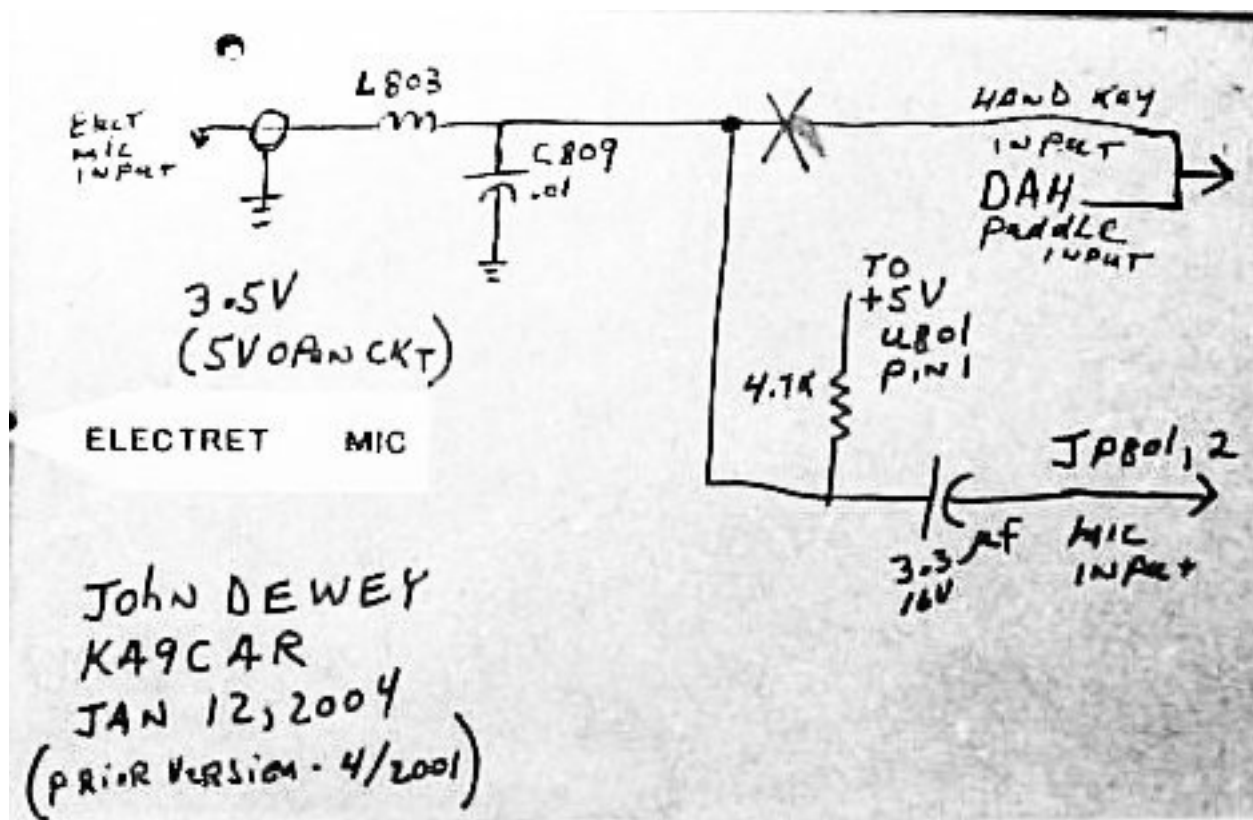 L803
ELECT
MIC
INPUT
C809
.01
HAND KEY
INPUT
DAH
PADDLE
INPUT
3.5V
(5V OPEN CKT)
TO
+5V
U801
PIN 1
4.7K
ELECTRET MIC
JP801, 2
3.3 µf
16V
MIC
INPUT
JOHN DEWEY
KA9CAR
JAN 12, 2004
(PRIOR VERSION - 4/2001)